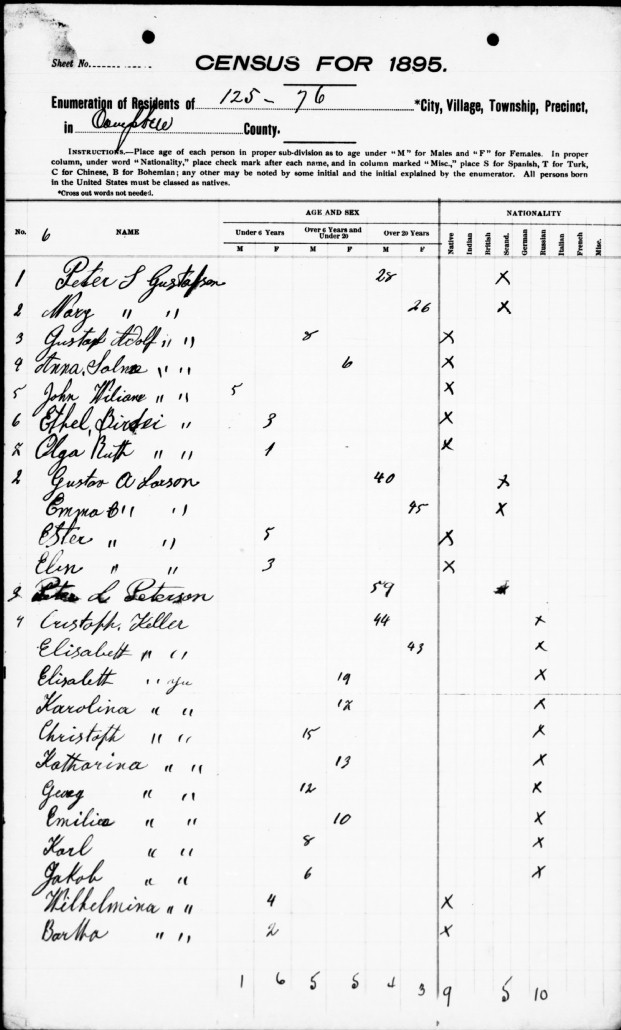 Sheet No.
CENSUS FOR 1895.
Enumeration of Residents of 125 - 76 *City, Village, Township, Precinct,
in Campbell County.
INSTRUCTIONS.—Place age of each person in proper sub-division as to age under "M" for Males and "F" for Females. In proper
column, under word "Nationality," place check mark after each name, and in column marked "Misc.," place S for Spanish, T for Turk,
C for Chinese, B for Bohemian; any other may be noted by some initial and the initial explained by the enumerator. All persons born
in the United States must be classed as natives.
*Cross out words not needed.
AGE AND SEX NATIONALITY
No. 6 NAME Under 6 Years Over 6 Years and Under 20 Over 20 Years Native Indian British Scand. German Russian Italian French Misc.
M F M F M F
1 Peter S Gustafson 28 X
2 Mary " " 26 X
3 Gustaf Adolf " " 8 X
4 Anna, " " 6 X
5 John Wiliam " " 5 X
6 Ethel, " 3 X
7 Olga Ruth " " 1 X
2 Gustav A Larson 40 X
Emma " " 45 X
Ester " " 5 X
Elin " " 3 X
3 Peter L Peterson 59 X
4 Cristoph. Keller 44 X
Elisabett " " 43 X
Elisabett " 19 X
Karolina " " 12 X
Christoph " " 15 X
Katharina " " 13 X
Georg " " 12 X
Emilie " " 10 X
Karl " " 8 X
Jakob " " 6 X
Wilhelmina " " 4 X
Bartha " " 2 X
1 6 5 5 4 3 9 5 10